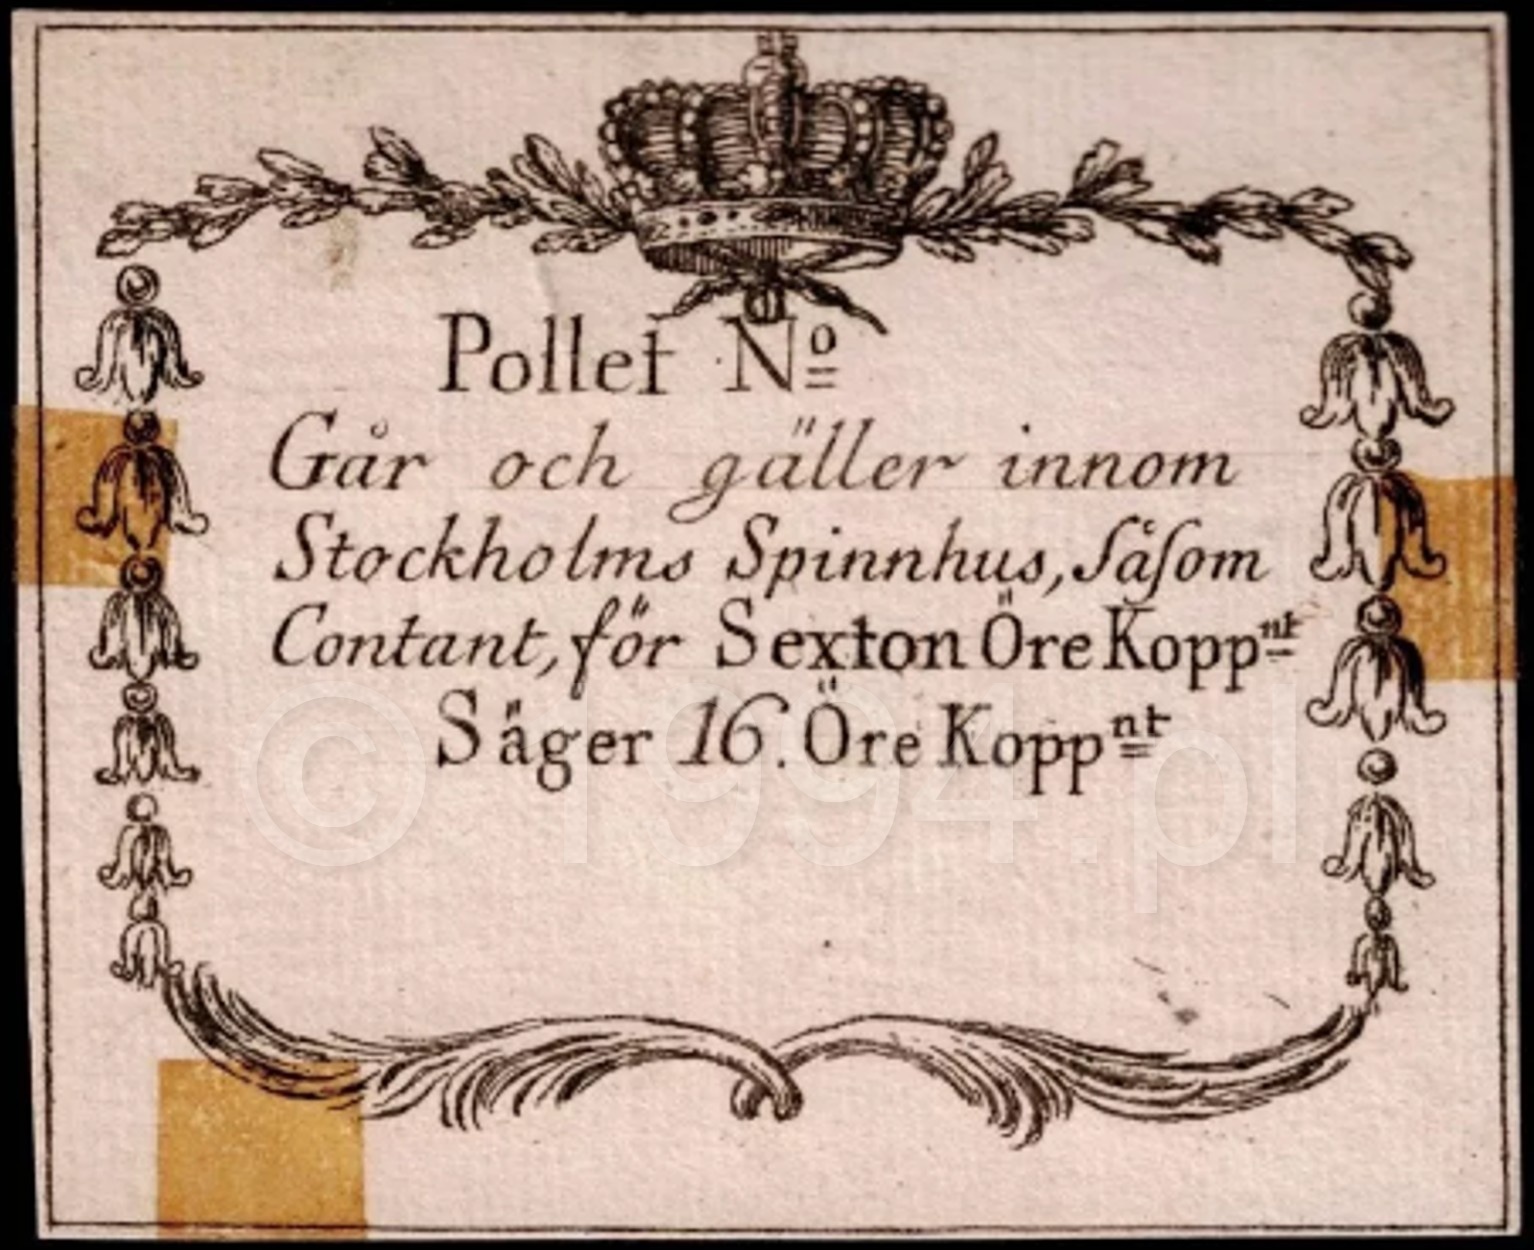 Pollet Nº
Går och gäller innom
Stockholms Spinnhus, ſåſom
Contant, för Sexton Öre Koppnt
Säger 16. Öre Koppnt
© 1994.pl